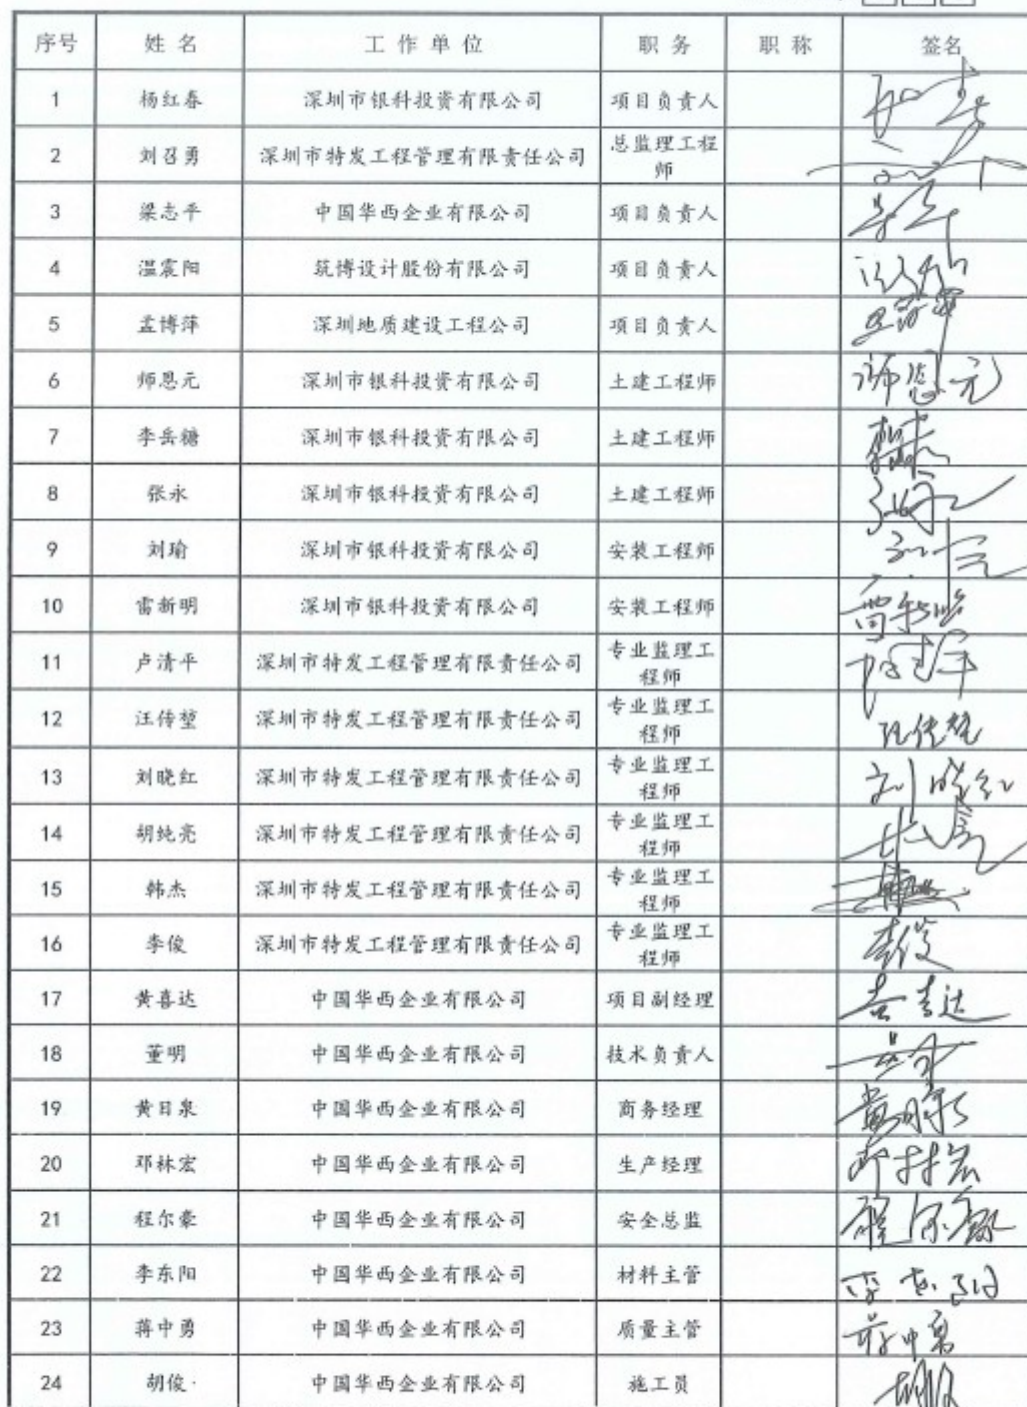 序号 姓名 工作单位 职务 职称 签名
1 杨红春 深圳市银科投资有限公司 项目负责人
2 刘召勇 深圳市特发工程管理有限责任公司 总监理工程
师
3 梁志平 中国华西企业有限公司 项目负责人
4 温震阳 筑博设计股份有限公司 项目负责人
5 孟博萍 深圳地质建设工程公司 项目负责人
6 师恩元 深圳市银科投资有限公司 土建工程师 师恩元
7 李岳糖 深圳市银科投资有限公司 土建工程师
8 张永 深圳市银科投资有限公司 土建工程师
9 刘瑜 深圳市银科投资有限公司 安装工程师
10 雷新明 深圳市银科投资有限公司 安装工程师
11 卢清平 深圳市特发工程管理有限责任公司 专业监理工
程师
12 汪传堃 深圳市特发工程管理有限责任公司 专业监理工
程师
13 刘晓红 深圳市特发工程管理有限责任公司 专业监理工
程师 刘晓红
14 胡纯亮 深圳市特发工程管理有限责任公司 专业监理工
程师
15 韩杰 深圳市特发工程管理有限责任公司 专业监理工
程师
16 李俊 深圳市特发工程管理有限责任公司 专业监理工
程师 李俊
17 黄喜达 中国华西企业有限公司 项目副经理
18 董明 中国华西企业有限公司 技术负责人
19 黄日泉 中国华西企业有限公司 商务经理
20 邓林宏 中国华西企业有限公司 生产经理 邓林宏
21 程尔豪 中国华西企业有限公司 安全总监
22 李东阳 中国华西企业有限公司 材料主管 李东阳
23 蒋中勇 中国华西企业有限公司 质量主管 蒋中勇
24 胡俊 中国华西企业有限公司 施工员 胡俊